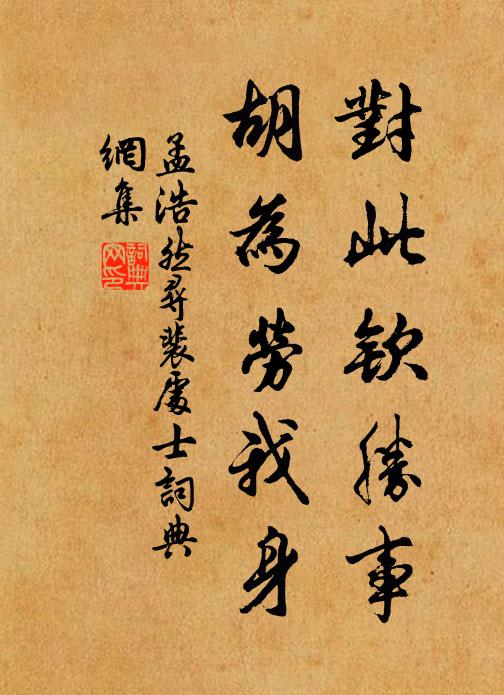 對此欽勝事
胡為勞我身
孟浩然尋裴處士詞典
網集
詞典網印